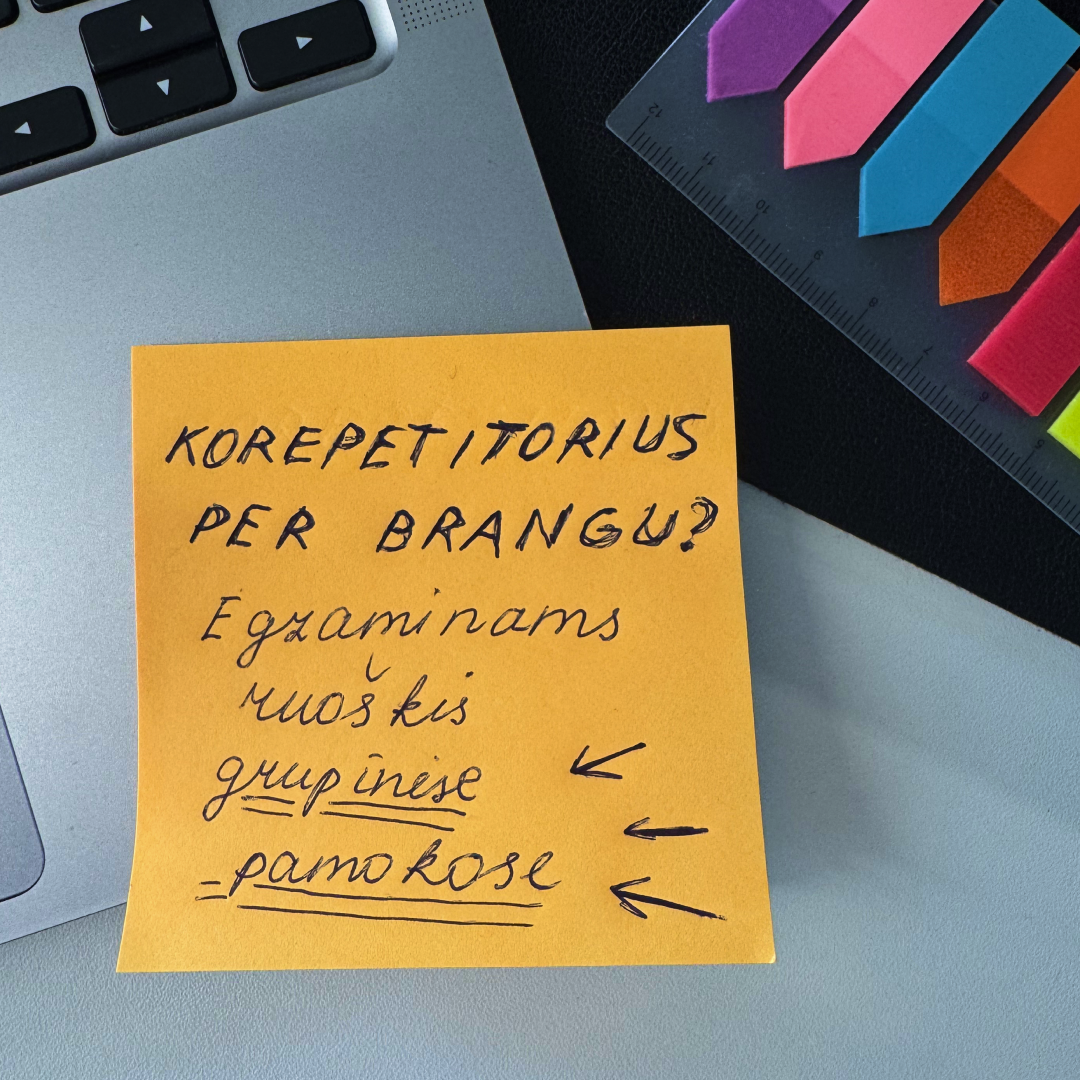 KOREPETITORIUS
PER BRANGU?
Egzaminams
ruoškis
grupinėse
pamokose
12
11
10
9
8
7
6
5